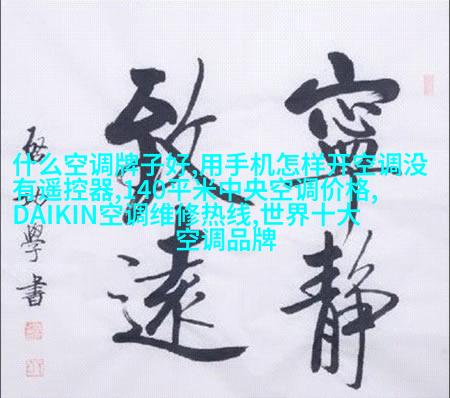 寧静
致遠
啟功學書
什么空调牌子好,用手机怎样开空调没
有遥控器,140平米中央空调价格,
DAIKIN空调维修热线,世界十大
空调品牌